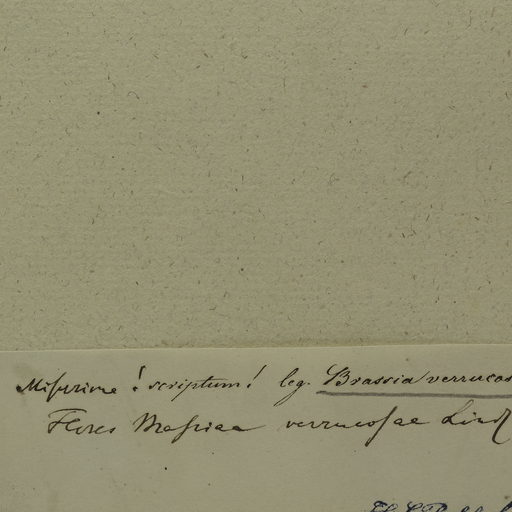 Misserime! scriptum! leg. Brassia verrucos
Flores Brassiae verrucosae Lindl